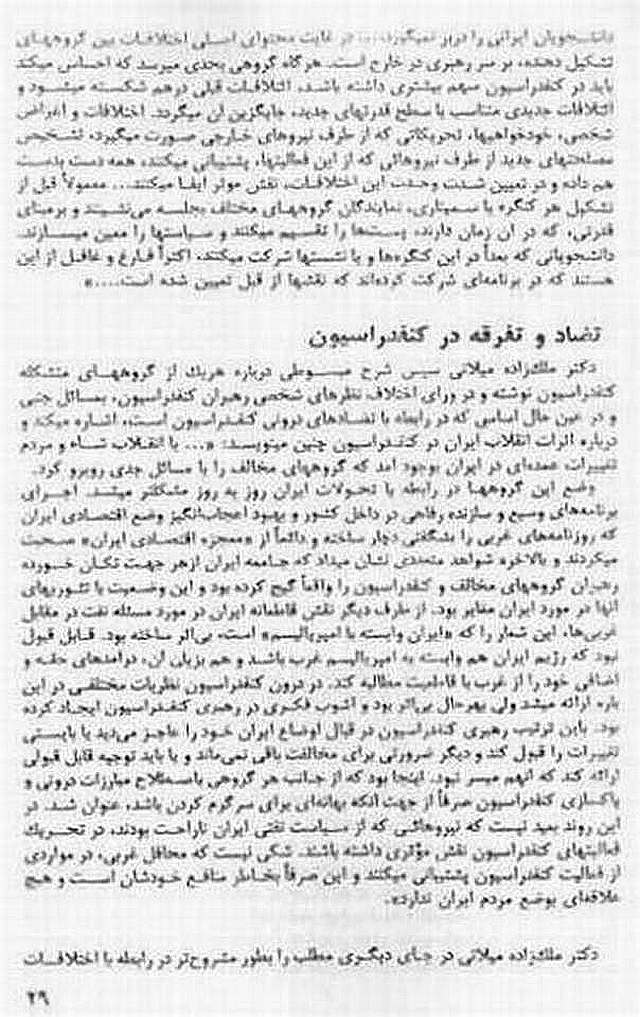 دانشجویان ایرانی را دربر نمیگیرد،... در غایت محتوای اصلی اختلافات بین گروههای
تشکیل دهنده، بر سر رهبری در خارج است. هرگاه گروهی بحدی میرسد که احساس میکند
باید در کنفدراسیون سهم بیشتری داشته باشد، ائتلافات قبلی درهم شکسته میشود و
ائتلافات جدیدی متناسب با سطح قدرتهای جدید، جایگزین آن میگردد. اختلافات و اغراض
شخصی، خودخواهیها، تحریکاتی که از طرف نیروهای خارجی صورت میگیرد، تشخیص
مصلحتهای جدید از طرف نیروهائی که از این فعالیتها، پشتیبانی میکنند، همه دست بدست
هم داده و در تعیین شدت وحدت این اختلافات، نقش موثر ایفا میکنند... معمولاً قبل از
تشکیل هر کنگره یا سمیناری، نمایندگان گروههای مختلف بجلسه می‌نشینند و برمبنای
قدرتی، که در آن زمان دارند، پست‌ها را تقسیم میکنند و سیاستها را معین میسازند.
دانشجویانی که بعداً در این کنگره‌ها و یا نشستها شرکت میکنند، اکثراً فارغ و غافل از این
هستند که در برنامه‌ای شرکت کرده‌اند که نقشها از قبل تعیین شده است....»
تضاد و تفرقه در کنفدراسیون
دکتر ملک‌زاده میلانی سپس شرح مبسوطی درباره هریک از گروههای متشکله
کنفدراسیون نوشته و در ورای اختلاف نظرهای شخصی رهبران کنفدراسیون، بمسائل جنبی
و در عین حال اساسی که در رابطه با تضادهای درونی کنفدراسیون است، اشاره میکند و
درباره اثرات انقلاب ایران در کنفدراسیون چنین مینویسد: «... با انقلاب شاه و مردم
تغییرات عمده‌ای در ایران بوجود آمد که گروههای مخالف را با مسائل جدی روبرو کرد.
وضع این گروهها در رابطه با تحولات ایران روز به روز مشکلتر میشد. اجرای
برنامه‌های وسیع و سازنده رفاهی در داخل کشور و بهبود اعجاب‌انگیز وضع اقتصادی ایران
که روزنامه‌های غربی را بشگفتی دچار ساخته و دائماً از «معجزه اقتصادی ایران» صحبت
میکردند و بالاخره شواهد متعددی نشان میداد که جامعه ایران ازهر جهت تکان خورده
رهبران گروههای مخالف و کنفدراسیون را واقعاً گیج کرده بود و این وضعیت با تئوریهای
آنها در مورد ایران مغایر بود. از طرف دیگر نقش قاطعانه ایران در مورد مسئله نفت در مقابل
غربی‌ها، این شعار را که «ایران وابسته با امپریالیسم» است، بی‌اثر ساخته بود. قابل قبول
نبود که رژیم ایران هم وابسته به امپریالیسم غرب باشد و هم بزیان آن، درآمدهای حقه و
اضافی خود را از غرب با قاطعیت مطالبه کند. در درون کنفدراسیون نظریات مختلفی در این
باره ارائه میشد ولی بهرحال بی‌اثر بود و آشوب فکری در رهبری کنفدراسیون ایجاد کرده
بود. باین ترتیب رهبری کنفدراسیون در قبال اوضاع ایران خود را عاجز می‌دید یا بایستی
تغییرات را قبول کند و دیگر ضرورتی برای مخالفت باقی نمی‌ماند و یا باید توجیه قابل قبولی
ارائه کند که آنهم میسر نبود. اینجا بود که از جانب هر گروهی باصطلاح مبارزات درونی و
پاکسازی کنفدراسیون صرفاً از جهت آنکه بهانه‌ای برای سرگرم کردن باشد، عنوان شد. در
این روند بعید نیست که نیروهائی که از سیاست نفتی ایران ناراحت بودند، در تحریک
فعالیتهای کنفدراسیون نقش مؤثری داشته باشند. شکی نیست که محافل غربی، در مواردی
از فعالیت کنفدراسیون پشتیبانی میکنند و این صرفاً بخاطر منافع خودشان است و هیچ
علاقه‌ای بوضع مردم ایران ندارد».
دکتر ملک‌زاده میلانی در جای دیگری مطلب را بطور مشروح‌تر در رابطه با اختلافات
۲۹